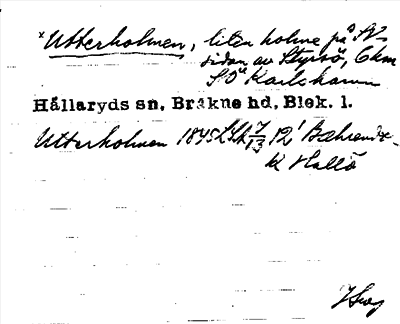 x Utterholmen, liten holme på SV
sidan av Styrsö, 6 km
SO Karlshamn
Hällaryds sn, Bräkne hd, Blek. l.
Utterholmen 1845 7/13 12'
K Hallö